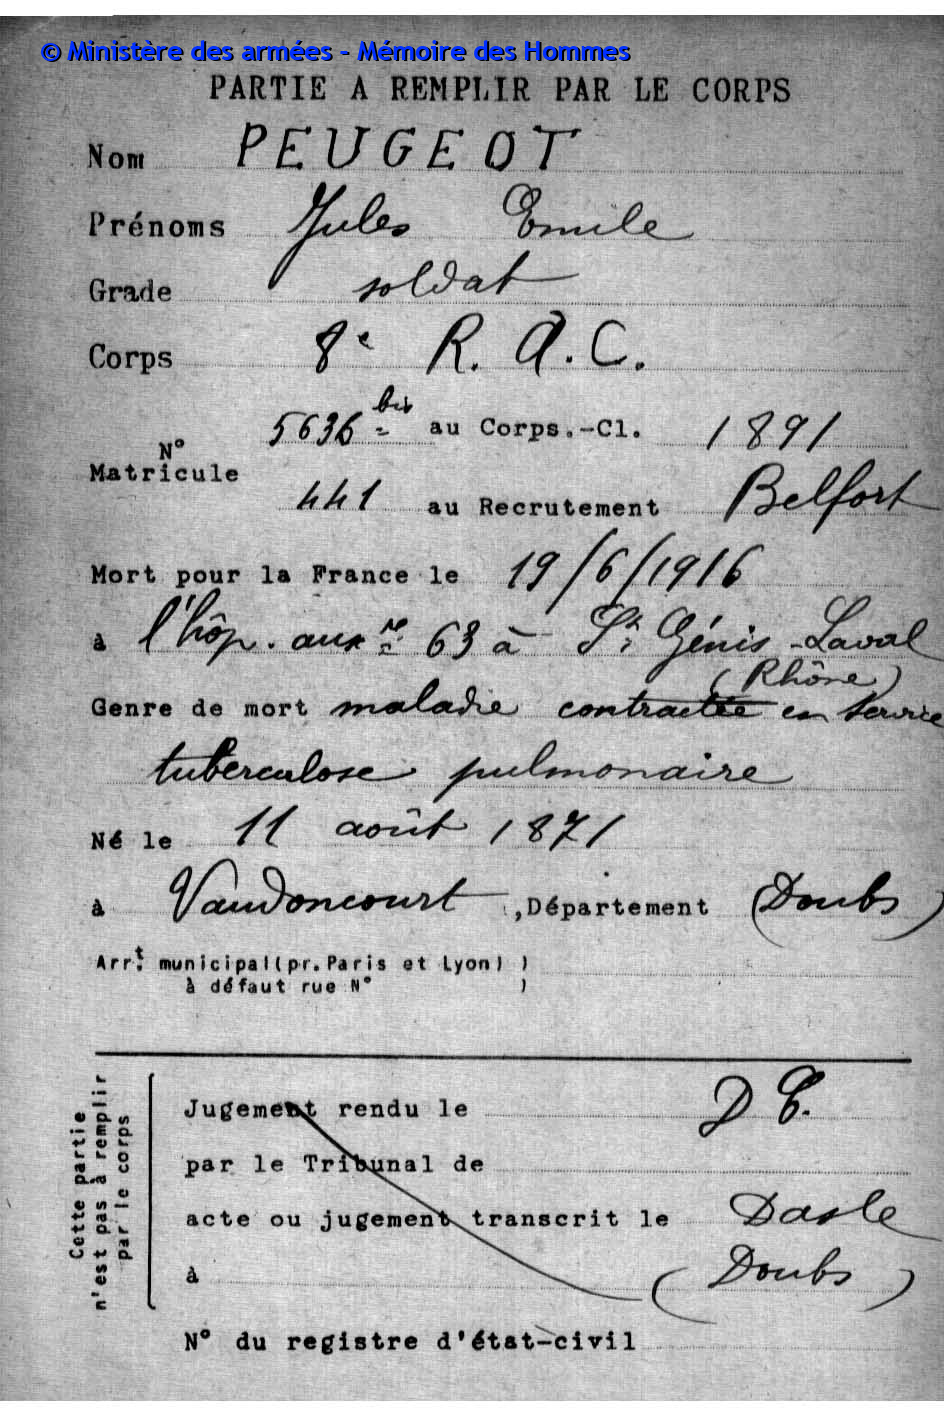 © Ministère des armées - Mémoire des Hommes
PARTIE A REMPLIR PAR LE CORPS
Nom PEUGEOT
Prénoms Jules Emile
Grade soldat
Corps 8e R. A. C.
N° Matricule
5636 bis au Corps.-Cl. 1891
441 au Recrutement Belfort
Mort pour la France le 19/6/1916
à l'hôp. auxre 63 à St Génis-Laval
(Rhône)
Genre de mort maladie contractée en service
tuberculose pulmonaire
Né le 11 août 1871
à Vandoncourt ,Département (Doubs)
Arrt municipal(pr.Paris et Lyon) )
à défaut rue N° )
Cette partie
n'est pas à remplir
par le corps
Jugement rendu le
par le Tribunal de
acte ou jugement transcrit le Dasle
à (Doubs)
N° du registre d'état-civil